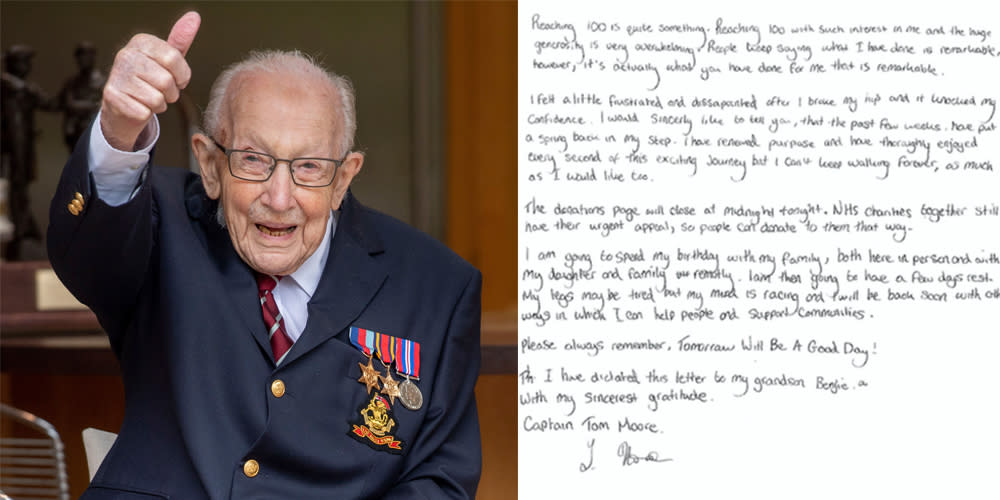 Reaching 100 is quite something. Reaching 100 with such interest in me and the huge
generosity is very overwhelming. People keep saying what I have done is remarkable,
however, it's actually what you have done for me that is remarkable.
I felt a little frustrated and dissapointed after I broke my hip and it knocked my
confidence. I would sincerly like to tell you, that the past few weeks have put
a spring back in my step. I have renewed purpose and have thoroughly enjoyed
every second of this exciting journey but I can't keep walking forever, as much
as I would like too.
The donations page will close at midnight tonight. NHS charities together still
have their urgent appeal, so people can donate to them that way.
I am going to spend my birthday with my family, both here in person and with
My daughter and family remotly. I am then going to have a few days rest.
My legs may be tired but my mind is racing and I will be back soon with oth
ways in which I can help people and support communities.
Please always remember, Tomorrow Will Be A Good Day!
I have dictated this letter to my grandson Benjie.
With my sincerest gratitude.
Captain Tom Moore.